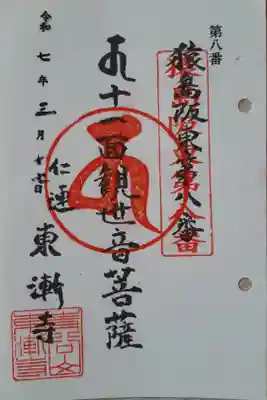 第八番
猿島阪東第八番
十一面観世音菩薩
令和七年三月廿七日
仁連
東漸寺